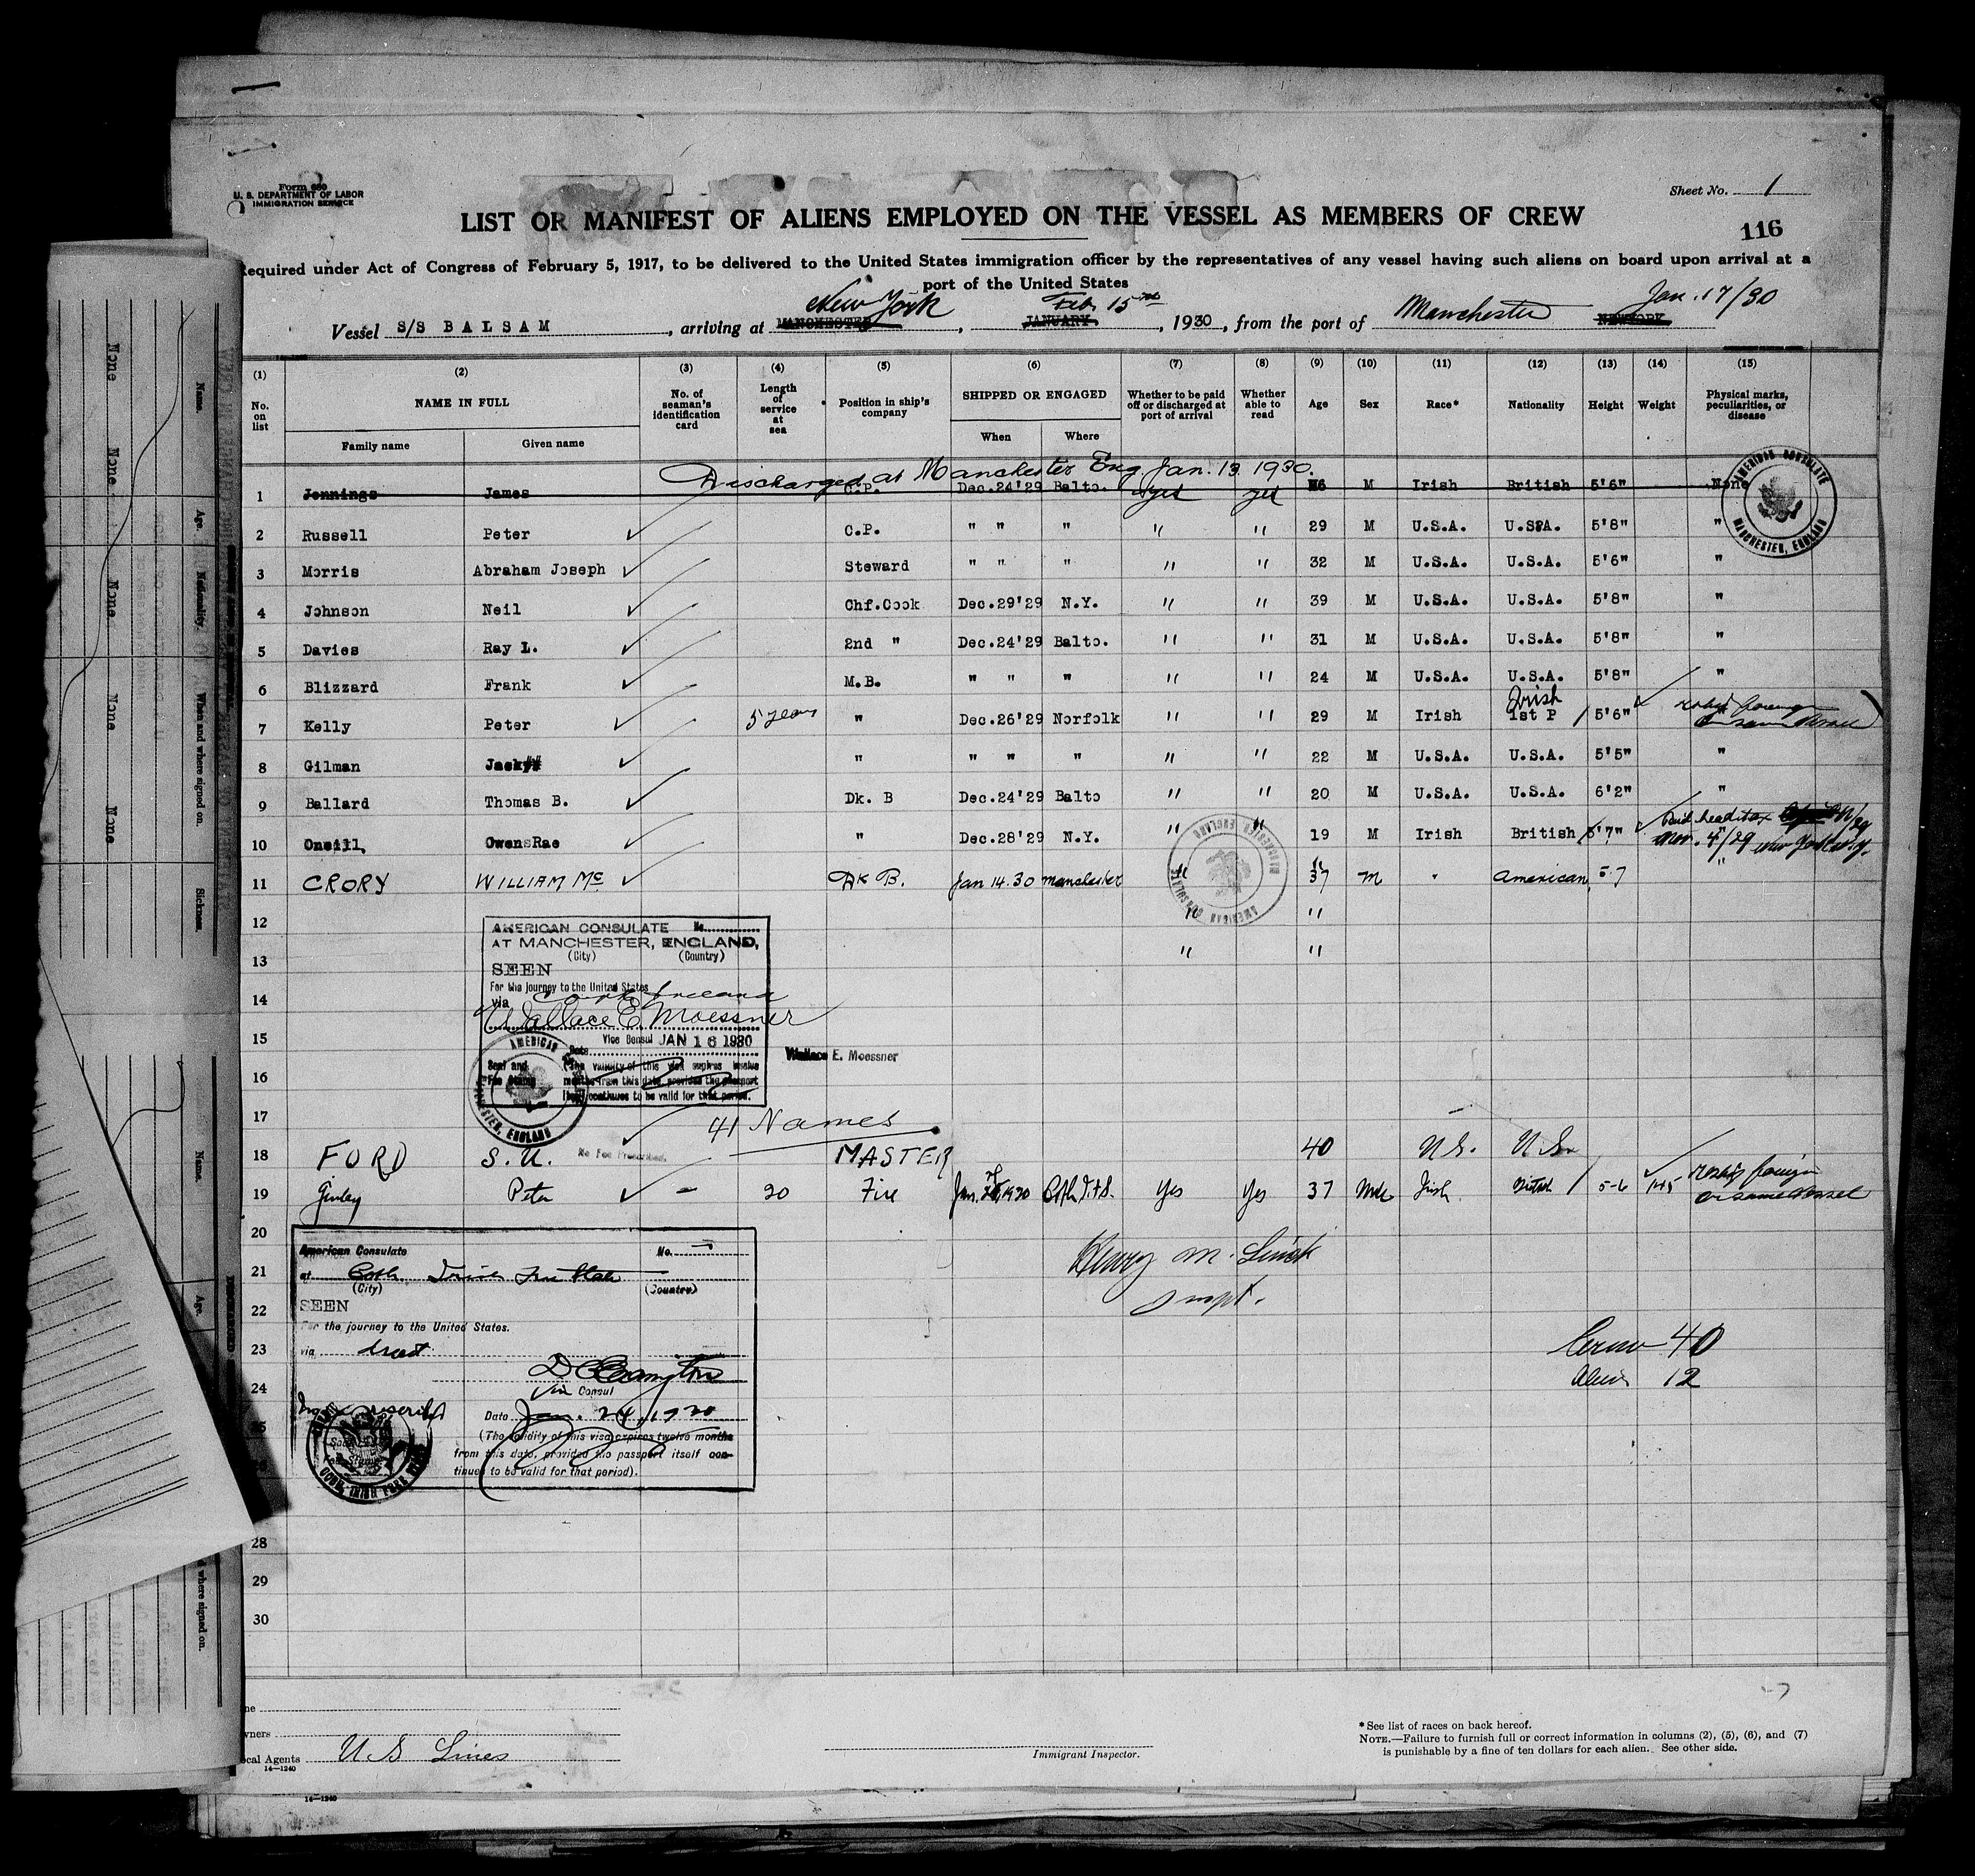 Form 680
U. S. DEPARTMENT OF LABOR
IMMIGRATION SERVICE
Sheet No. 1
LIST OR MANIFEST OF ALIENS EMPLOYED ON THE VESSEL AS MEMBERS OF CREW
116
Required under Act of Congress of February 5, 1917, to be delivered to the United States immigration officer by the representatives of any vessel having such aliens on board upon arrival at a
port of the United States
New York Feb 15 Jan. 17/30
Vessel S/S BALSAM, arriving at MANCHESTER, JANUARY, 1930, from the port of Manchester NEWYORK
(1) (2) (3) (4) (5) (6) (7) (8) (9) (10) (11) (12) (13) (14) (15)
No. on list NAME IN FULL No. of seaman's identification card Length of service at sea Position in ship's company SHIPPED OR ENGAGED Whether to be paid off or discharged at port of arrival Whether able to read Age Sex Race* Nationality Height Weight Physical marks, peculiarities, or disease
Family name Given name When Where
Discharged at Manchester Eng. Jan. 13 1930.
1 Jennings James C.P. Dec.24'29 Balto. yes yes 6 M Irish British 5'6" None
2 Russell Peter C.P. " " " " " 29 M U.S.A. U.S.A. 5'8" "
3 Morris Abraham Joseph Steward " " " " " 32 M U.S.A. U.S.A. 5'6" "
4 Johnson Neil Chf.Cook Dec.29'29 N.Y. " " 39 M U.S.A. U.S.A. 5'8" "
5 Davies Ray L. 2nd " Dec.24'29 Balto. " " 31 M U.S.A. U.S.A. 5'8" "
6 Blizzard Frank M.B. " " " " " 24 M U.S.A. U.S.A. 5'8" "
7 Kelly Peter 5 years " Dec.26'29 Norfolk " " 29 M Irish Irish 1st P 5'6" reship foreign
on same vessel
8 Gilman Jack " " " " " " 22 M U.S.A. U.S.A. 5'5" "
9 Ballard Thomas B. Dk. B Dec.24'29 Balto " " 20 M U.S.A. U.S.A. 6'2" "
10 Oneill, Owen Rae " Dec.28'29 N.Y. " " 19 M Irish British 5'7" Paid head tax
Nov. 4/29 New York N.Y.
11 CRORY WILLIAM Mc Dk B. Jan 14.30 Manchester " " 37 M " American 5-7 "
12 " "
13 " "
14
15
16
17
AMERICAN CONSULATE No.
AT MANCHESTER, ENGLAND,
(City) (Country)
SEEN
For the journey to the United States
via Cork Ireland
Wallace E. Moessner
Vice Consul
Date JAN 16 1930
Wallace E. Moessner
Seal and Fee Stamp
(The validity of this visa expires twelve
months from this date, provided the passport
itself continues to be valid for that period.
AMERICAN CONSULATE
MANCHESTER, ENGLAND
No Fee Prescribed.
41 Names
18 FORD S. U. MASTER 40 U.S. U.S.
19 Ginley Peter - 20 Fire Jan. 1930 Cobh I.F.S. Yes Yes 37 Male Irish British 5-6 145 reship foreign
on same vessel
20
21
22
23
24
25
26
28
29
30
American Consulate No.
at Cobh Irish Free State
(City) (Country)
SEEN
For the journey to the United States.
via direct
Vice Consul
No fee prescribed
Date Jan. 24, 1930
(The validity of this visa expires twelve months
from this date, provided the passport itself con-
tinues to be valid for that period).
COBH, IRISH FREE STATE
Henry M.
Crew 40
Aliens 12
Owners
Local Agents U S Lines
14—1240
Immigrant Inspector.
* See list of races on back hereof.
NOTE.—Failure to furnish full or correct information in columns (2), (5), (6), and (7)
is punishable by a fine of ten dollars for each alien. See other side.
14—1240
Name. Age. Nationality. When and where signed on. Sickness.
None None None None None
Name. Age. where signed on.